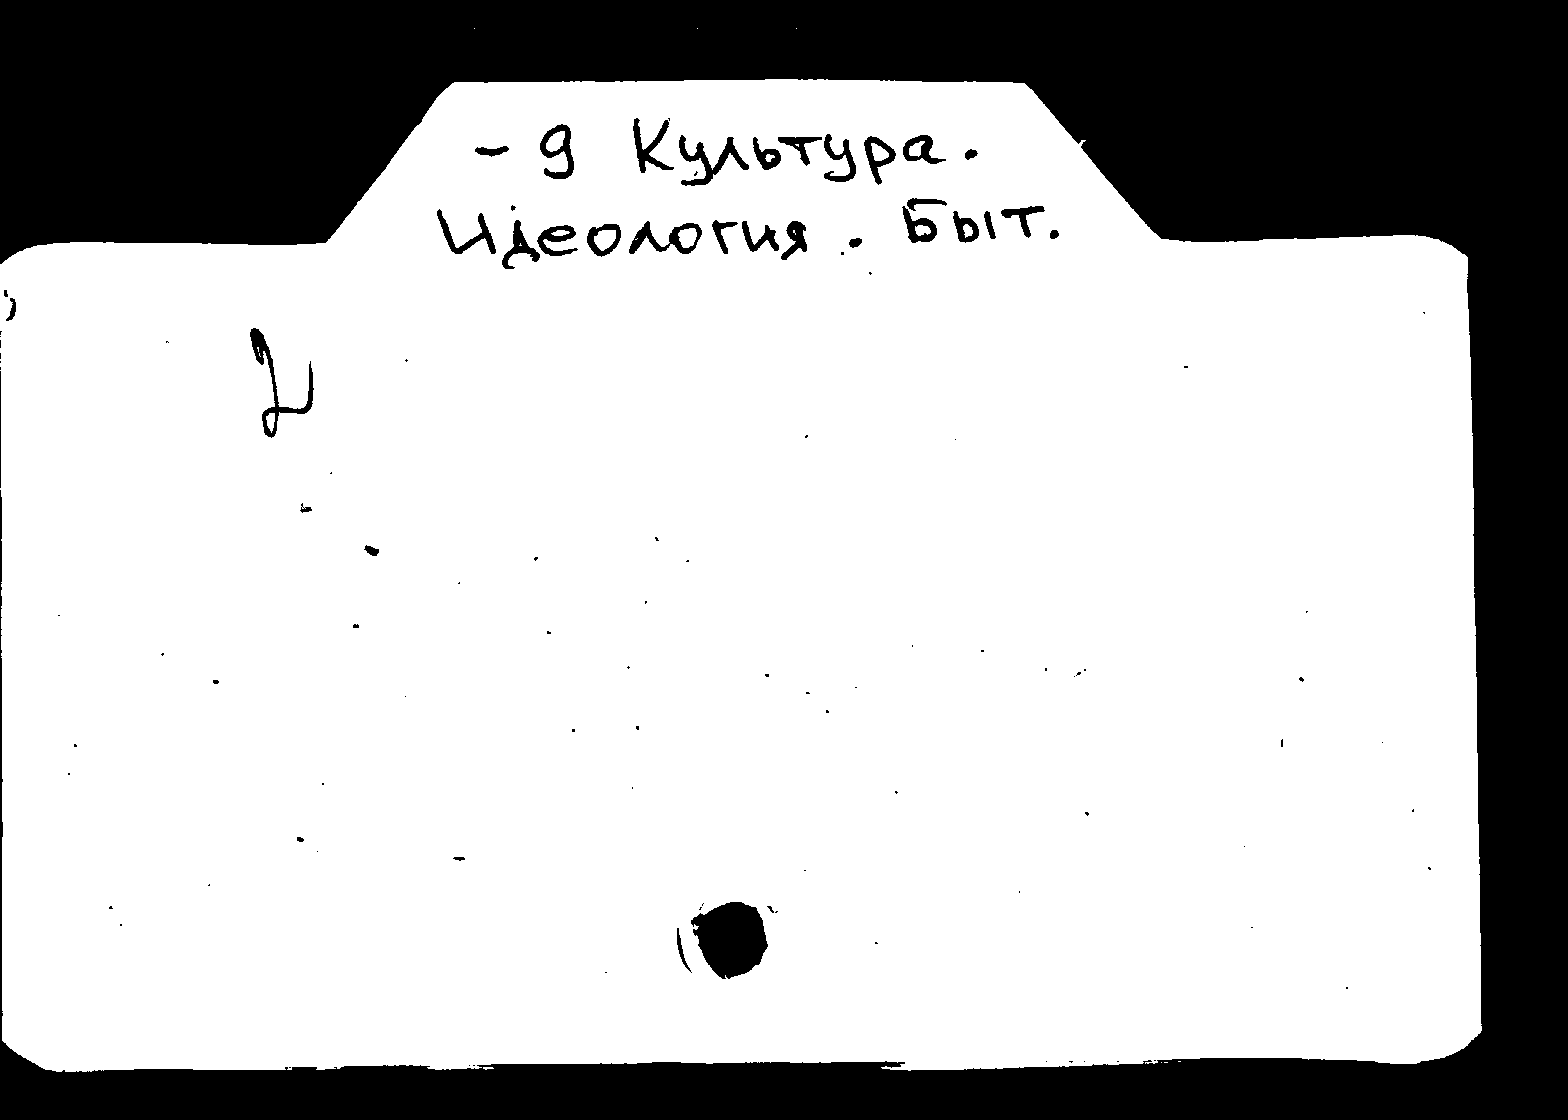 - 9 Культура.
Идеология. Быт.